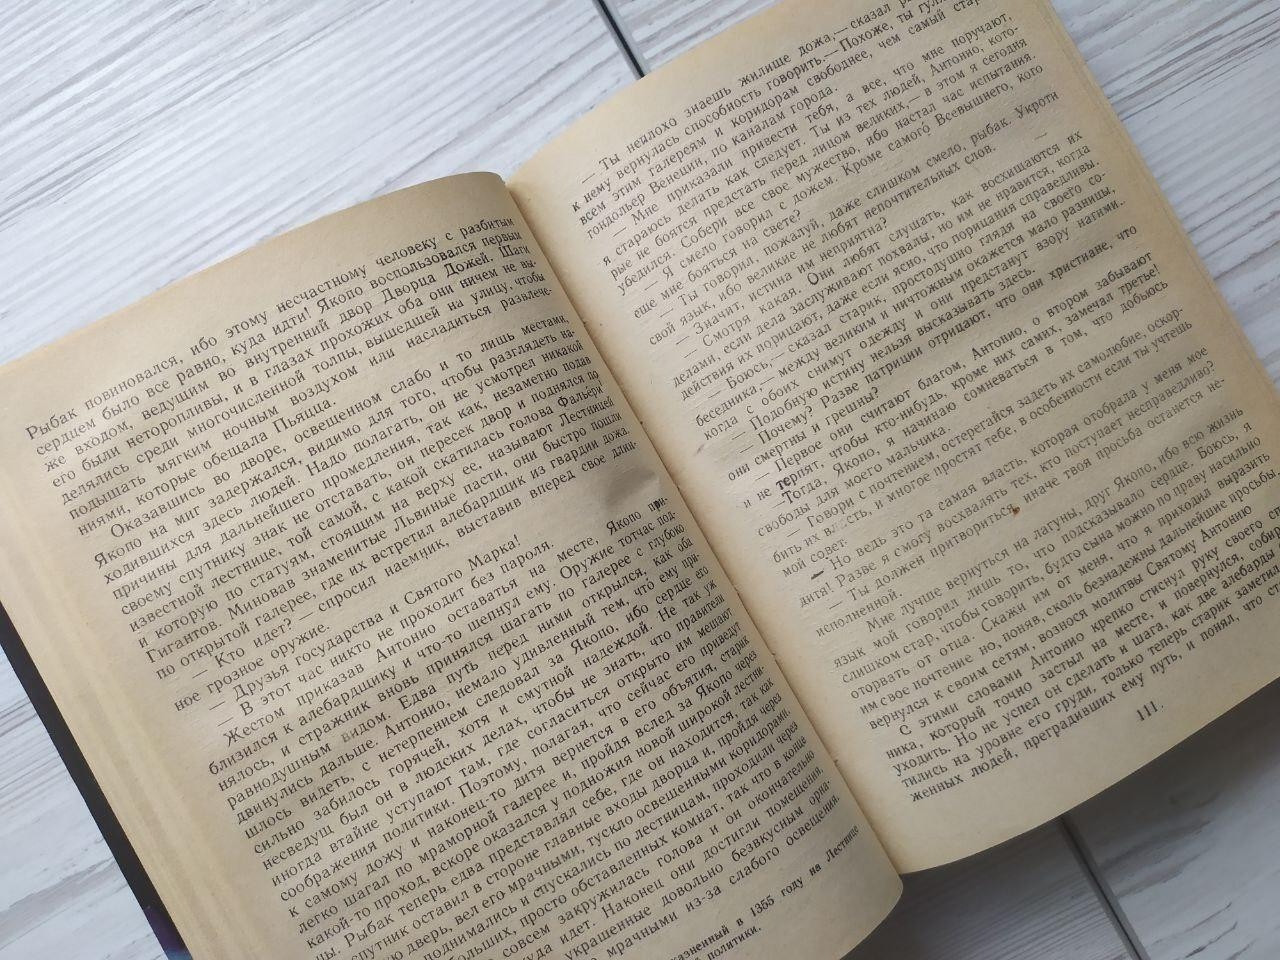 Рыбак повиновался, ибо этому несчастному человеку с разбитым
сердцем было все равно, куда идти! Якопо воспользовался первым
же входом, ведущим во внутренний двор Дворца Дожей. Шаги
его были неторопливы, и в глазах прохожих оба они ничем не вы-
делялись среди многочисленной толпы, вышедшей на улицу, чтобы
подышать мягким ночным воздухом или насладиться развлече-
ниями, которые обещала Пьяцца.
Оказавшись во дворе, освещенном слабо и то лишь местами,
Якопо на миг задержался, видимо для того, чтобы разглядеть на-
ходившихся здесь людей. Надо полагать, он не усмотрел никакой
причины для дальнейшего промедления, так как, незаметно подав
своему спутнику знак не отставать, он пересек двор и поднялся по
известной лестнице, той самой, с какой скатилась голова Фальери
и которую по статуям, стоящим на верху ее, называют Лестницей
Гигантов. Миновав знаменитые Львиные пасти, они быстро пошли
по открытой галерее, где их встретил алебардщик из гвардии дожа.
— Кто идет? — спросил наемник, выставив вперед свое длин-
ное грозное оружие.
— Друзья государства и Святого Марка!
— В этот час никто не проходит без пароля.
Жестом приказав Антонио оставаться на месте, Якопо при-
близился к алебардщику и что-то шепнул ему. Оружие тотчас под-
нялось, и стражник вновь принялся шагать по галерее с глубоко
равнодушным видом. Едва путь перед ними открылся, как оба
двинулись дальше. Антонио, немало удивленный тем, что ему при-
шлось видеть, с нетерпением следовал за Якопо, ибо сердце его
сильно забилось горячей, хотя и смутной надеждой. Не так уж
несведущ был он в людских делах, чтобы не знать, что правители
иногда втайне уступают там, где согласиться открыто им мешают
соображения политики. Поэтому, полагая, что сейчас его приведут
к самому дожу и наконец-то дитя вернется в его объятия, старик
легко шагал по мраморной галерее и, пройдя вслед за Якопо через
какой-то проход, вскоре оказался у подножия новой широкой лестни-
цы. Рыбак теперь едва представлял себе, где он находится, так как
спутник оставил в стороне главные входы дворца и, пройдя через
ую дверь, вел его мрачными, тускло освещенными коридорами,
поднимались и спускались по лестницам, проходили через
больших, просто обставленных комнат, так что в конце
совсем закружилась голова и он окончательно
куда идет. Наконец они достигли помещения,
украшенные довольно безвкусным орна-
мрачными из-за слабого освещения.
казненный в 1355 году на Лестнице
политики.
— Ты неплохо знаешь жилище дожа,— сказал
к нему вернулась способность говорить.— Похоже, ты
всем этим галереям и коридорам свободнее, чем самый
гондольер Венеции, по каналам города.
— Мне приказали привести тебя, а все, что мне поручают,
я стараюсь делать как следует. Ты из тех людей, Антонио, кото-
рые не боятся предстать перед лицом великих,— в этом я сегодня
убедился. Собери все свое мужество, ибо настал час испытания.
— Я смело говорил с дожем. Кроме самого Всевышнего, кого
еще мне бояться на свете?
— Ты говорил, пожалуй, даже слишком смело, рыбак. Укроти
свой язык, ибо великие не любят непочтительных слов.
— Значит, истина им неприятна?
— Смотря какая. Они любят слушать, как восхищаются их
делами, если дела заслуживают похвалы, но им не нравится, когда
действия их порицают, даже если ясно, что порицания справедливы.
— Боюсь,— сказал старик, простодушно глядя на своего со-
беседника,— между великим и ничтожным окажется мало разницы,
когда с обоих снимут одежду и они предстанут взору нагими.
— Подобную истину нельзя высказывать здесь.
— Почему? Разве патриции отрицают, что они христиане, что
они смертны и грешны?
— Первое они считают благом, Антонио, о втором забывают
и не терпят, чтобы кто-нибудь, кроме них самих, замечал третье!
— Тогда, Якопо, я начинаю сомневаться в том, что добьюсь
свободы для моего мальчика.
— Говори с почтением, остерегайся задеть их самолюбие, оскор-
бить их власть, и многое простят тебе, в особенности если ты учтешь
мой совет.
— Но ведь это та самая власть, которая отобрала у меня мое
дитя! Разве я смогу восхвалять тех, кто поступает несправедливо?
— Ты должен притвориться, иначе твоя просьба останется не-
исполненной.
— Мне лучше вернуться на лагуны, друг Якопо, ибо всю жизнь
язык мой говорил лишь то, что подсказывало сердце. Боюсь, я
слишком стар, чтобы говорить, будто сына можно по праву насильно
оторвать от отца. Скажи им от меня, что я приходил выразить
им свое почтение но, поняв, сколь безнадежны дальнейшие просьбы,
вернулся к своим сетям, вознося молитвы Святому Антонию
С этими словами Антонио крепко стиснул руку своего
ника, который точно застыл на месте, и повернулся,
уходить. Но не успел он сделать и шага, как две алебарды
тились на уровне его груди, только теперь старик
женных людей, преградивших ему путь, и понял, что
111.